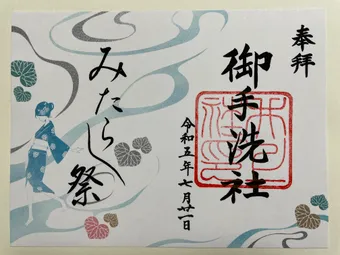 奉拝
御手洗社
令和五年七月廿一日
みたらし祭